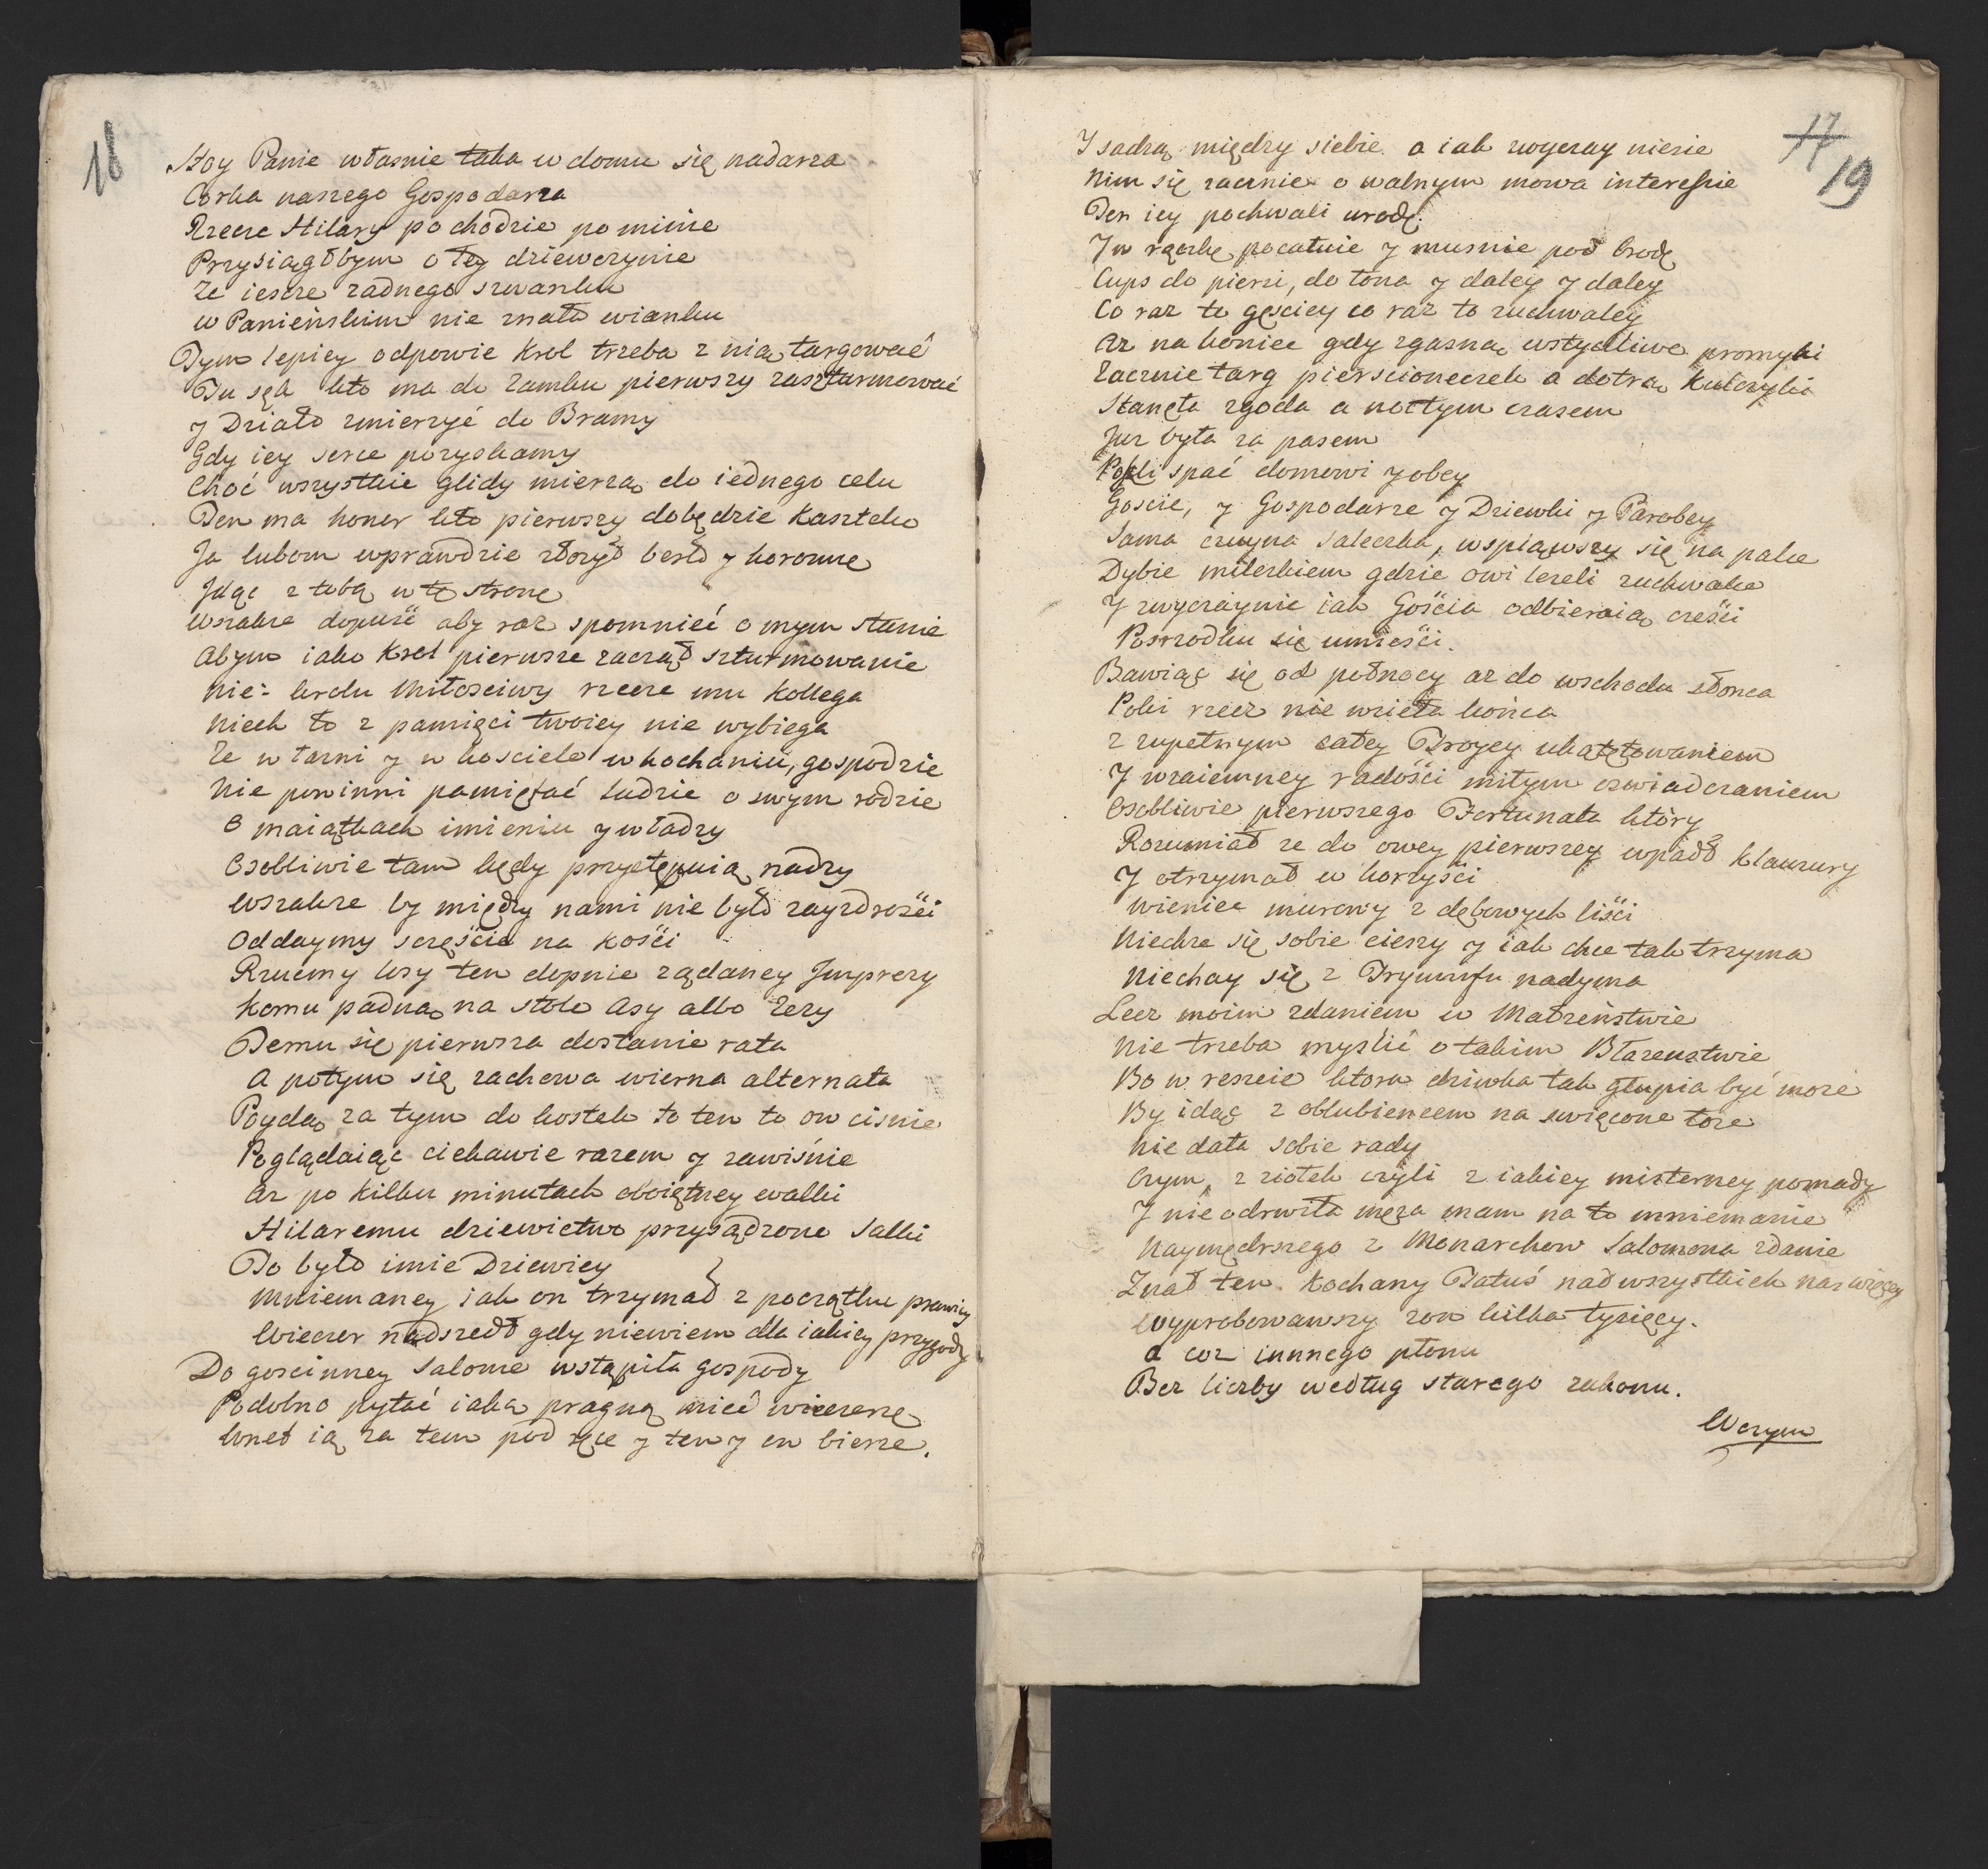 18
Stoy Panie własnie taka w domu się nadarza
Corka naszego Gospodarza
Rzecze Hilary po chodzie po minie
Przysiągłbym o tey dziewczynie
Ze iescze zadnego szwanku
w Panieńskim nie znała wianku
Tym lepiey odpowie Krol trzeba z nią targować
Tu sęk kto ma do Zamku pierwszy zaszturmować
y Działo zmierzyć do Bramy
Gdy iey serce pozyskamy
Choć wszystkie Glidy mierzą do iednego celu
Ten ma honor kto pierwszy dobędzie Kasztelu
Ja lubom wprawdzie złożył berło y koronne
Idąc z tobą w tę stronę
Wszakże dopuść aby raz spomnieć o mym stanie
Abym iako Krol pierwsze zaczął szturmowanie
Nie: krolu Miłosciwy rzecze mu Kollega
Niech to z pamięci twoiey nie wybiega
Ze w łazni y w kosciele w kochaniu, gospodzie
Nie powinni pamiętać ludzie o swym rodzie
O maiątkach imieniu y władzy
Osobliwie tam kędy przystępuią nadzy
Wszakze by między nami nie było zayzdrości
Oddaymy sczęście na kości
Rzucmy losy ten dopnie ządaney Imprezy
Komu padną na stole Asy albo Zezy
Temu się pierwsza dostanie rata
A potym się zachowa wierna alternata
Poydą za tym do kostek to ten to ow ciśnie
Poglądaiąc ciekawie razem y zawiśnie
Az po kilku minutach oboiętney walki
Hilaremu dziewictwo przysądzone Salki
To było imie Dziewicy
Mniemaney iak on trzymał z początku prawicy
Wieczor nadszedł gdy niewiem dla iakiey przygody
Do goscinney Salome wstąpiła gospody
Podobno pytać iaką pragną mieć wieczerzę
Wnet ią za tem pod ręce y ten y ow bierze.
17
19
I sadzą między siebie a iak zwyczay niesie
Nim się zacznie o walnym mowa interessie
Ten iey pochwali urodę.
I w rączkę pocałuie y musnie pod brodę
Cups do piersi, do łona y daley y daley
Co raz to gęściey co raz to zuchwaley
Az na koniec gdy zgasną wstydliwe promyki
Zacznie targ pierscioneczek a dotrą Kulczyki
Stanęła zgoda a noc tym czasem
Juz była za pasem
Poszli spać domowi y obcy
Goscie, y Gospodarze y Dziewki y Parobcy
Sama czuyna Saleczka, wspiąwszy się na palce
Dybie milczkiem gdzie owi lezeli zuchwalce
I zwyczaynie iak Gościa odbieraią części
Posrzodku się umieści.
Bawiąc się od połnocy az do wschodu słonca
Poki rzecz nie wzieła końca
z zupełnym całey Troycy ukątętowaniem
I wzaiemney radości miłym oswiadczaniem
Osobliwie pierwszego Fortunata który
Rozumiał ze do owey pierwszey wpadł Klauzury
I otrzymał w korzyści
Wieniec murowy z dębowych liści
Niechze się sobie cieszy y iak chce tak trzyma
Niechay się z Tryumfu nadyma
Lecz moim zdaniem w Małzeństwie
Nie trzeba myslić o takim Błazenstwie
Bo w reszcie ktora dziwka tak głupia być może
By idąc z oblubiencem na swięcone łoze
Nie dała sobie rady
Czym, z ziołek czyli z iakiey misterney pomady
I nie odrwiła męza mam na to mniemanie
Naymędrszego z Monarchow Salomona zdanie
Znał ten Kochany Tatuś nad wszystkich nas więcey
Wyprobowawszy zon kilka tysięcy.
A coz innnego płonu
Bez liczby według starego zakonu.
Wczym